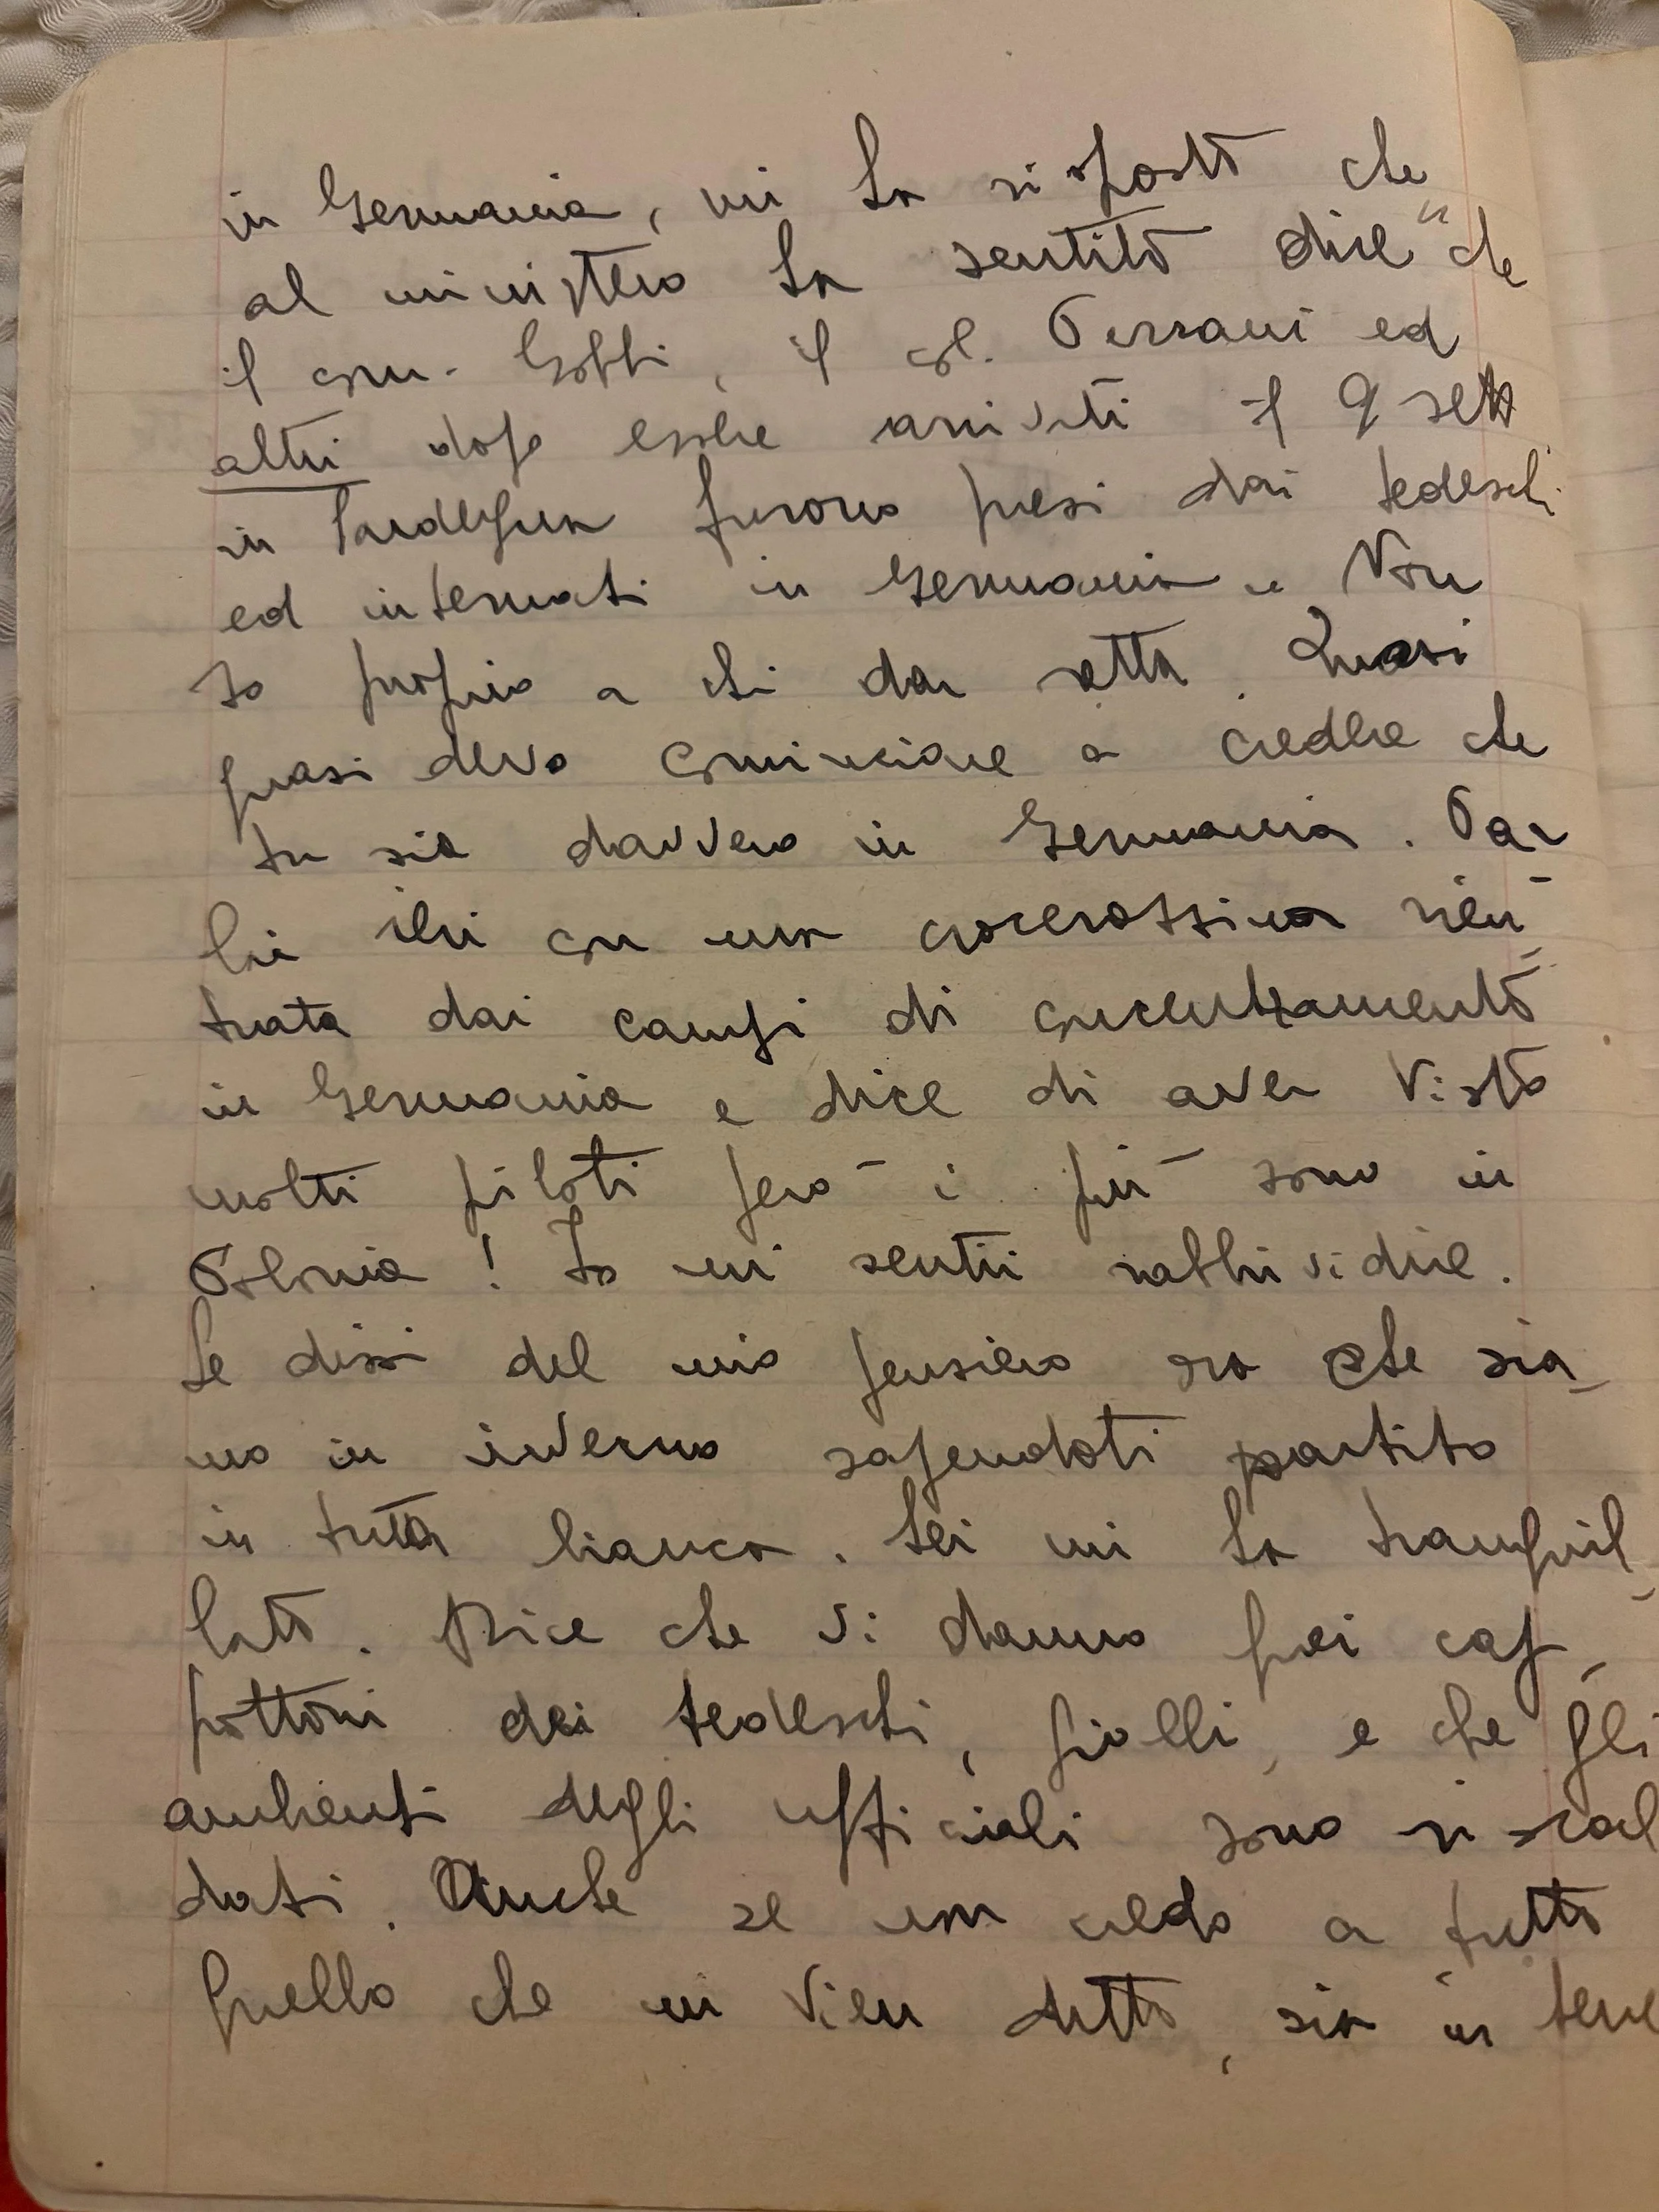 in Germania, mi ha risposto che
al ministero ha sentito dire "che
il com. Gobbi, il col. Perrani ed
altri dopo essere arrivati il 9 sett
in Sardegna furono presi dai tedeschi
ed internati in Germania" Non
so proprio a chi dar retta. Quasi
quasi devo cominciare a credere che
tu sia davvero in Germania. Par
lai ieri con una crocerossina rien-
trata dai campi di concentramento
in Germania e dice di aver visto
molti piloti però i più sono in
Polonia! Io mi sentii rabbrividire.
Le dissi del mio pensiero ora che sia-
mo in inverno sapendoti partito
in tuta bianca. Lei mi ha tranquil-
lato. Dice che vi danno quei cap-
pottoni dei tedeschi, gialli, e che gli
ambienti degli ufficiali sono riscal
dati. Anche se non credo a tutto
quello che mi vien detto, sia in bene